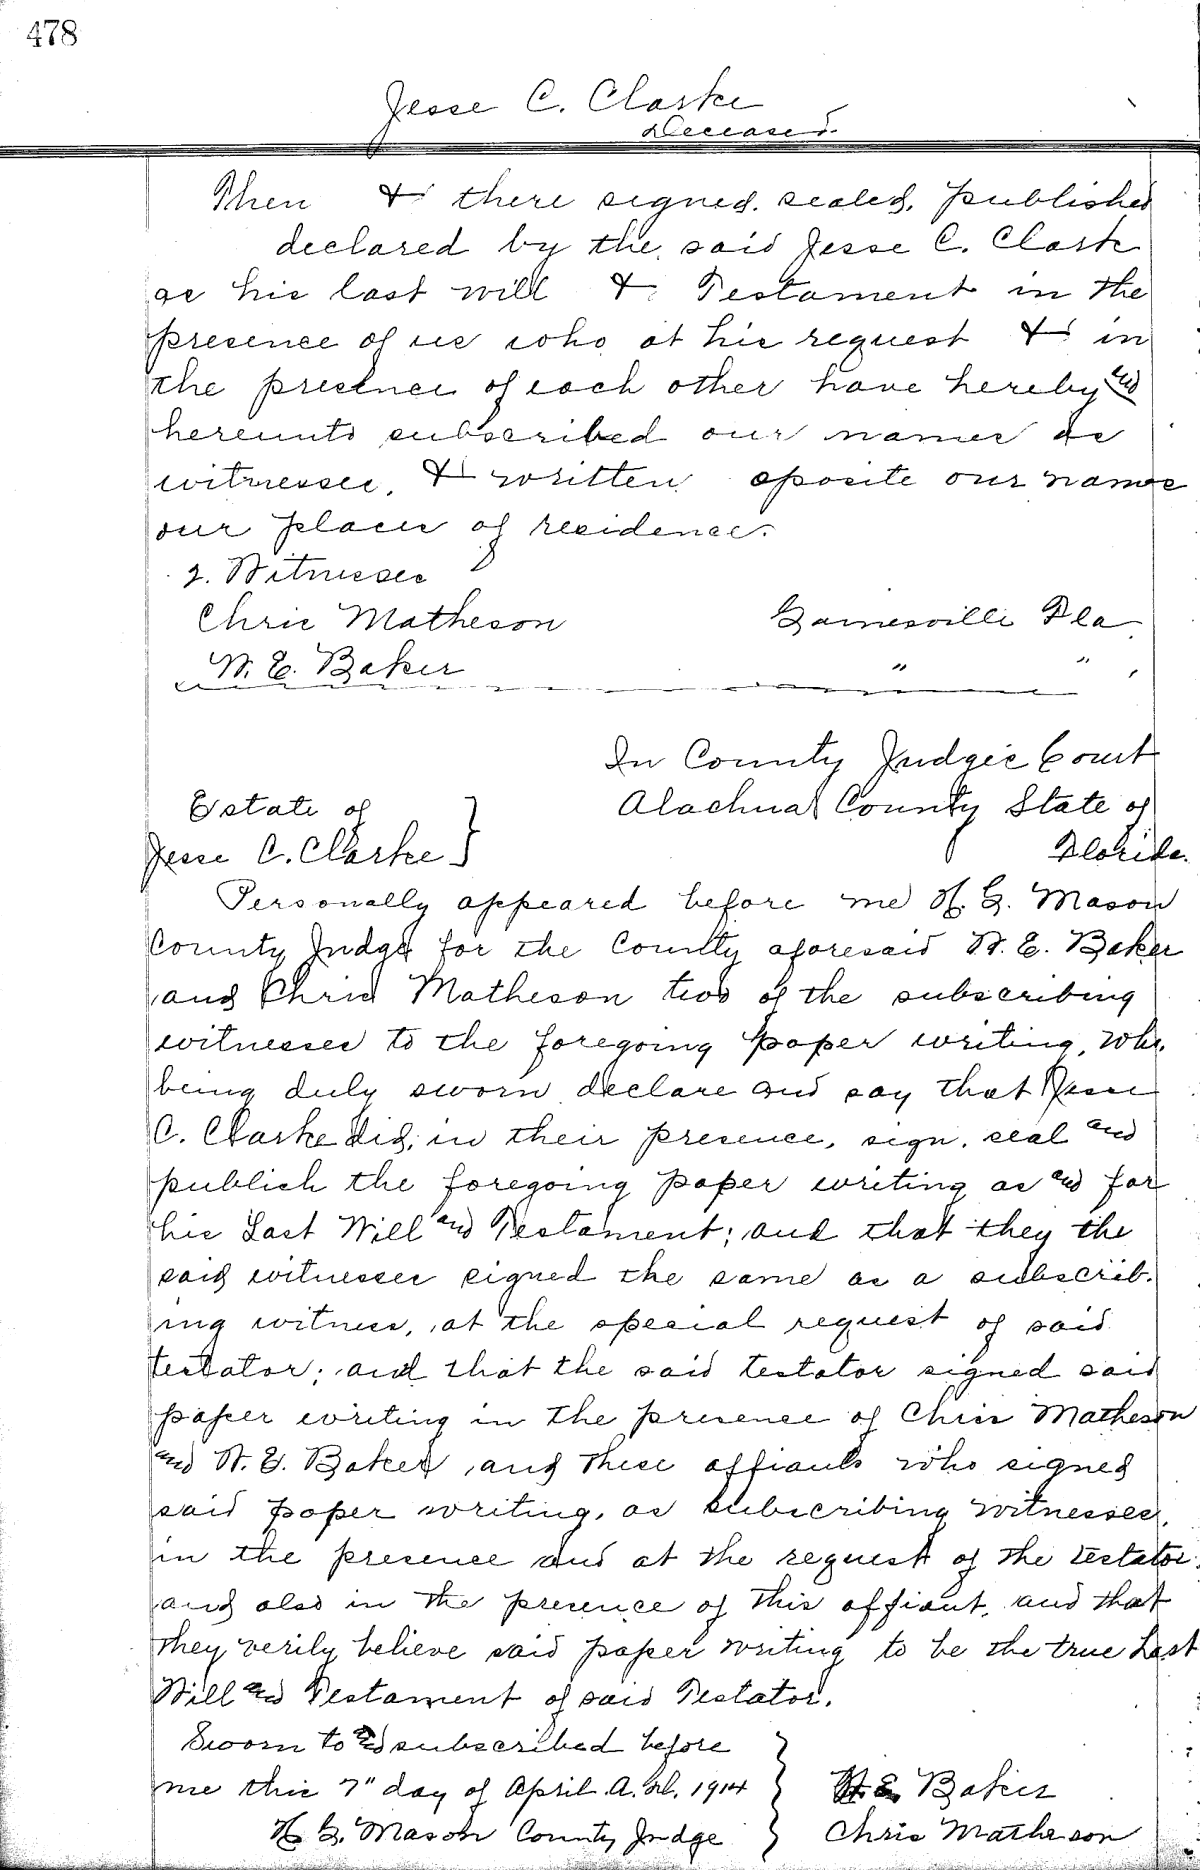 478
Jesse C. Clarke
Deceased.
Then & there signed. sealed, published
declared by the said Jesse C. Clark
as his last will & Testament in the
presence of us who at his request & in
the presence of each other have hereby and
hereunto subscribed our names as
witnesses, & written oposite our names
our places of residence.
2. Witnesses
Chris Matheson Gainesville Fla
W. E. Baker " "
In County Judge's Court
Estate of Alachua County State of
Jesse C. Clarke } Florida.
Personally appeared before me H. G. Mason
County Judge for the County aforesaid W. E. Baker
and Chris Matheson two of the subscribing
witnesses to the foregoing paper writing, who,
being duly sworn declare and say that Jesse
C. Clarke did, in their presence, sign, seal and
publish the foregoing paper writing as and for
his Last Will and Testament; and that they the
said witnesses signed the same as a subscrib-
ing witness, at the special request of said
testator; and that the said testator signed said
paper writing in the presence of Chris Matheson
and W. E. Baker, and these affiants who signed
said paper writing, as subscribing witnesses,
in the presence and at the request of the testator,
and also in the presence of this affiant, and that
they verily believe said paper writing to be the true Last
Will and Testament of said Testator.
Sworn to and subscribed before
me this 7" day of April A. D. 1914 } W. E. Baker
H. G. Mason County Judge } Chris Matheson